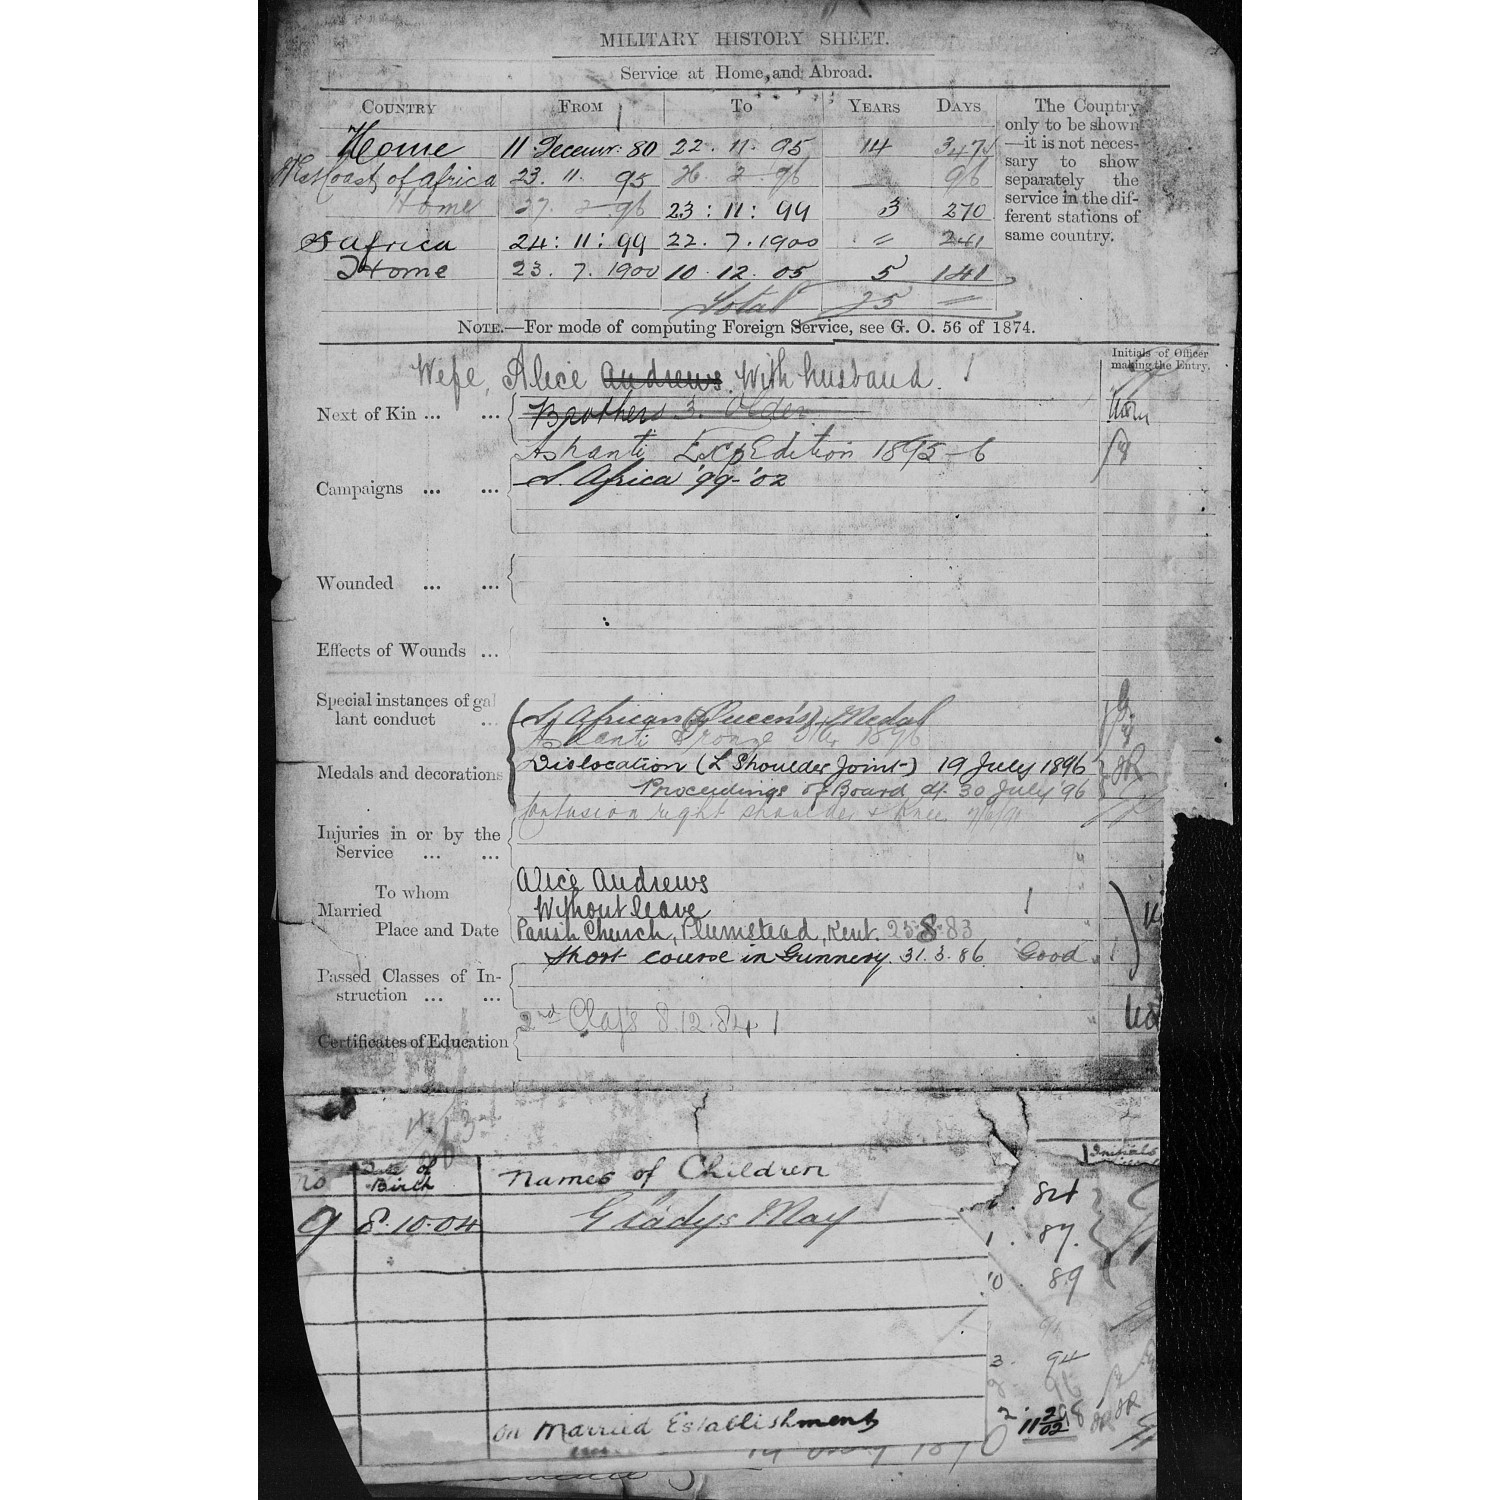 MILITARY HISTORY SHEET.
Service at Home, and Abroad.
COUNTRY FROM TO YEARS DAYS
Home 11 Decemr: 80 22. 11. 95 14 347
West Coast of Africa 23. 11. 95 26. 2. 96 96
Home 27. 2. 96 23 : 11 : 99 3 270
S Africa 24 : 11 : 99 22. 7. 1900 " 241
Home 23. 7. 1900 10. 12. 05 5 141
Total 25 =
The Country
only to be shown
—it is not neces-
sary to show
separately the
service in the dif-
ferent stations of
same country.
NOTE.—For mode of computing Foreign Service, see G. O. 56 of 1874.
Initials of Officer
making the Entry.
Wife, Alice Andrews With husband.
Next of Kin ... ... Brothers 3. Older
Ashanti Expedition 1895–6
Campaigns ... ... S. Africa '99-'02
Wounded ... ...
Effects of Wounds ...
Special instances of gal
lant conduct ...
S. African (Queen's) Medal
Ashanti Bronze Star 1896
Medals and decorations Dislocation (L Shoulder Joint) 19 July 1896
Proceedings of Board dt. 30 July '96
Contusion right shoulder & Knee
Injuries in or by the
Service ... ...
To whom Alice Andrews
Married Without leave
Place and Date Parish Church, Plumstead, Kent. 25.8.83
Short course in Gunnery. 31. 3. 86 Good
Passed Classes of In-
struction ... ...
2nd Class 8.12.84
Certificates of Education
No Date of Birth Names of Children
Initials
9 8.10.04 Gladys May
84
1. 87.
10 89
3. 94
2. 98
11 2 02
On Married Establishment